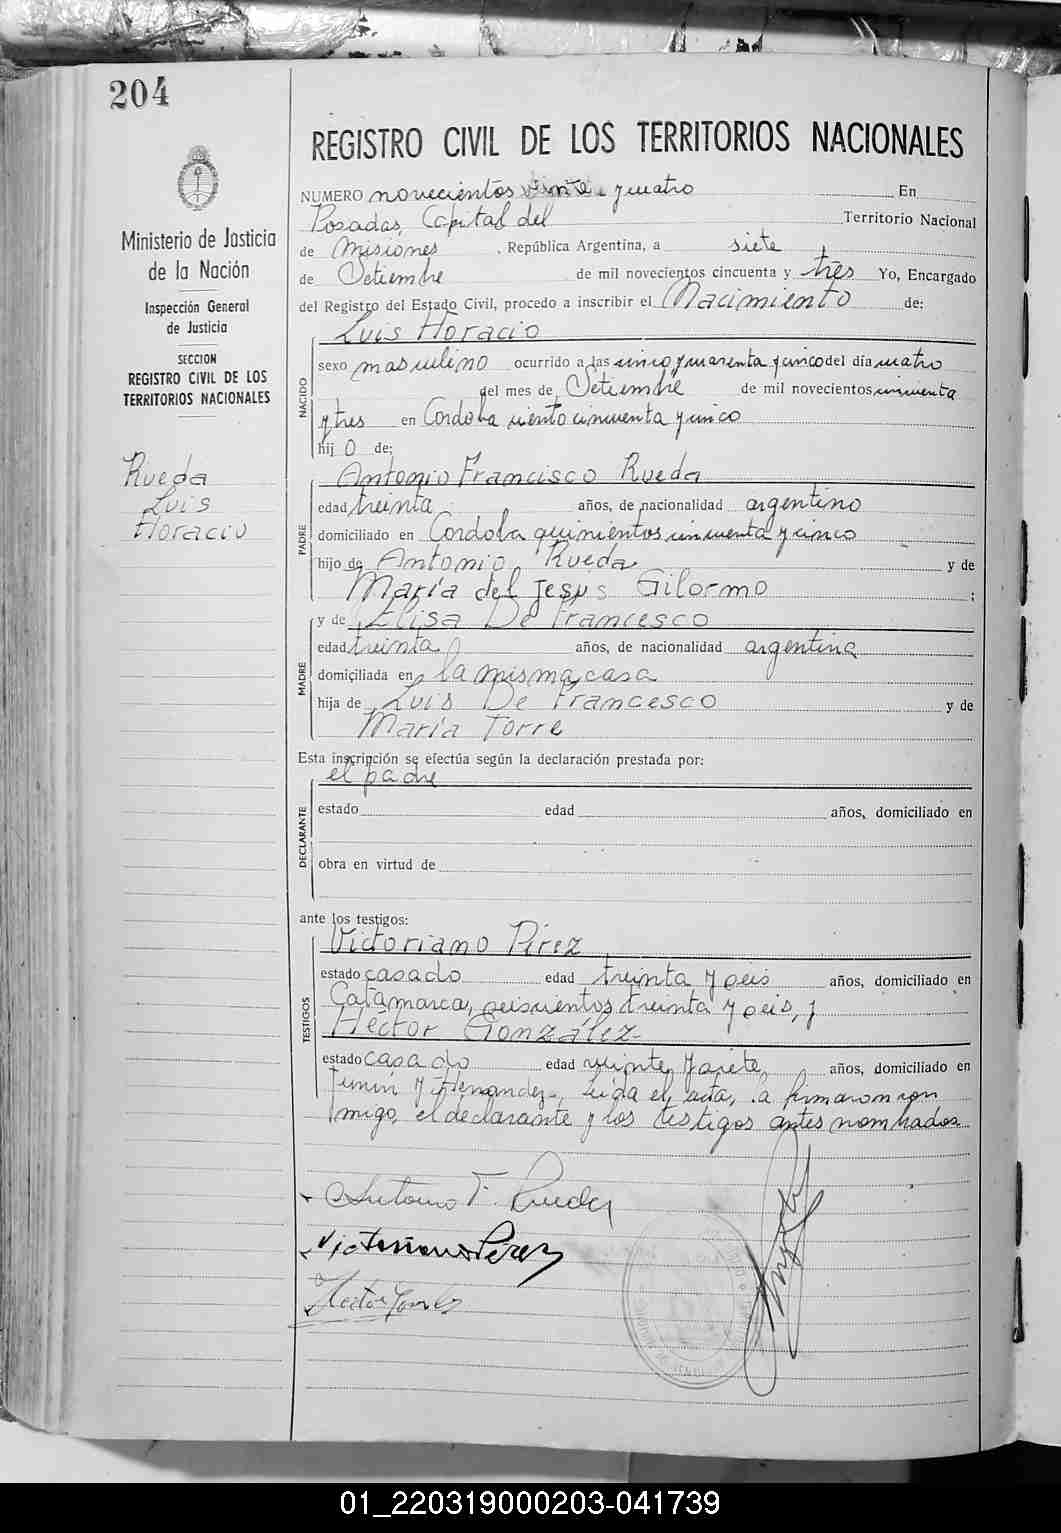 204
REGISTRO CIVIL DE LOS TERRITORIOS NACIONALES
Ministerio de Justicia
de la Nación
Inspección General
de Justicia
SECCION
REGISTRO CIVIL DE LOS
TERRITORIOS NACIONALES
Rueda
Luis
Horacio
NUMERO novecientos veinte y cuatro En
Posadas, Capital del Territorio Nacional
de Misiones, República Argentina, a siete
de Setiembre de mil novecientos cincuenta y tres Yo, Encargado
del Registro del Estado Civil, procedo a inscribir el Nacimiento de:
Luis Horacio
NACIDO
sexo masculino ocurrido a las cinco y cuarenta y cinco del día cuatro
del mes de Setiembre de mil novecientos cincuenta
y tres en Cordoba ciento cincuenta y cinco
hijo de:
Antonio Francisco Rueda
PADRE
edad treinta años, de nacionalidad argentino
domiciliado en Cordoba quinientos cincuenta y cinco
hijo de Antonio Rueda y de
María del Jesus Gilormo ;
y de Elisa De Francesco
MADRE
edad treinta años, de nacionalidad argentina
domiciliada en la misma casa
hija de Luis De Francesco y de
María Torre
Esta inscripción se efectúa según la declaración prestada por:
el padre
DECLARANTE
estado edad años, domiciliado en
obra en virtud de
ante los testigos:
Victoriano Pérez
TESTIGOS
estado casado edad treinta y seis años, domiciliado en
Catamarca, seiscientos treinta y seis, y
Héctor González
estado casado edad veinte y siete, años, domiciliado en
Junín y Hernandez, Leida el acta, la firmaron con
migo, el declarante y los testigos antes nombrados
Antonio F. Rueda
Victoriano Pérez
01_220319000203-041739